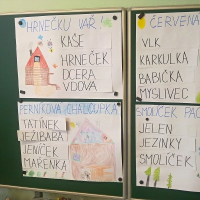 HRNEČKU VAŘ
KAŠE
HRNEČEK
DCERA
VDOVA
ČERVENÁ
VLK
KARKULKA
BABIČKA
MYSLIVEC
PERNÍKOVÁ CHALOUPKA
TATÍNEK
JEŽIBABA
JENÍČEK
MAŘENKA
SMOLÍČEK PAC
JELEN
JEZINKY
SMOLÍČEK